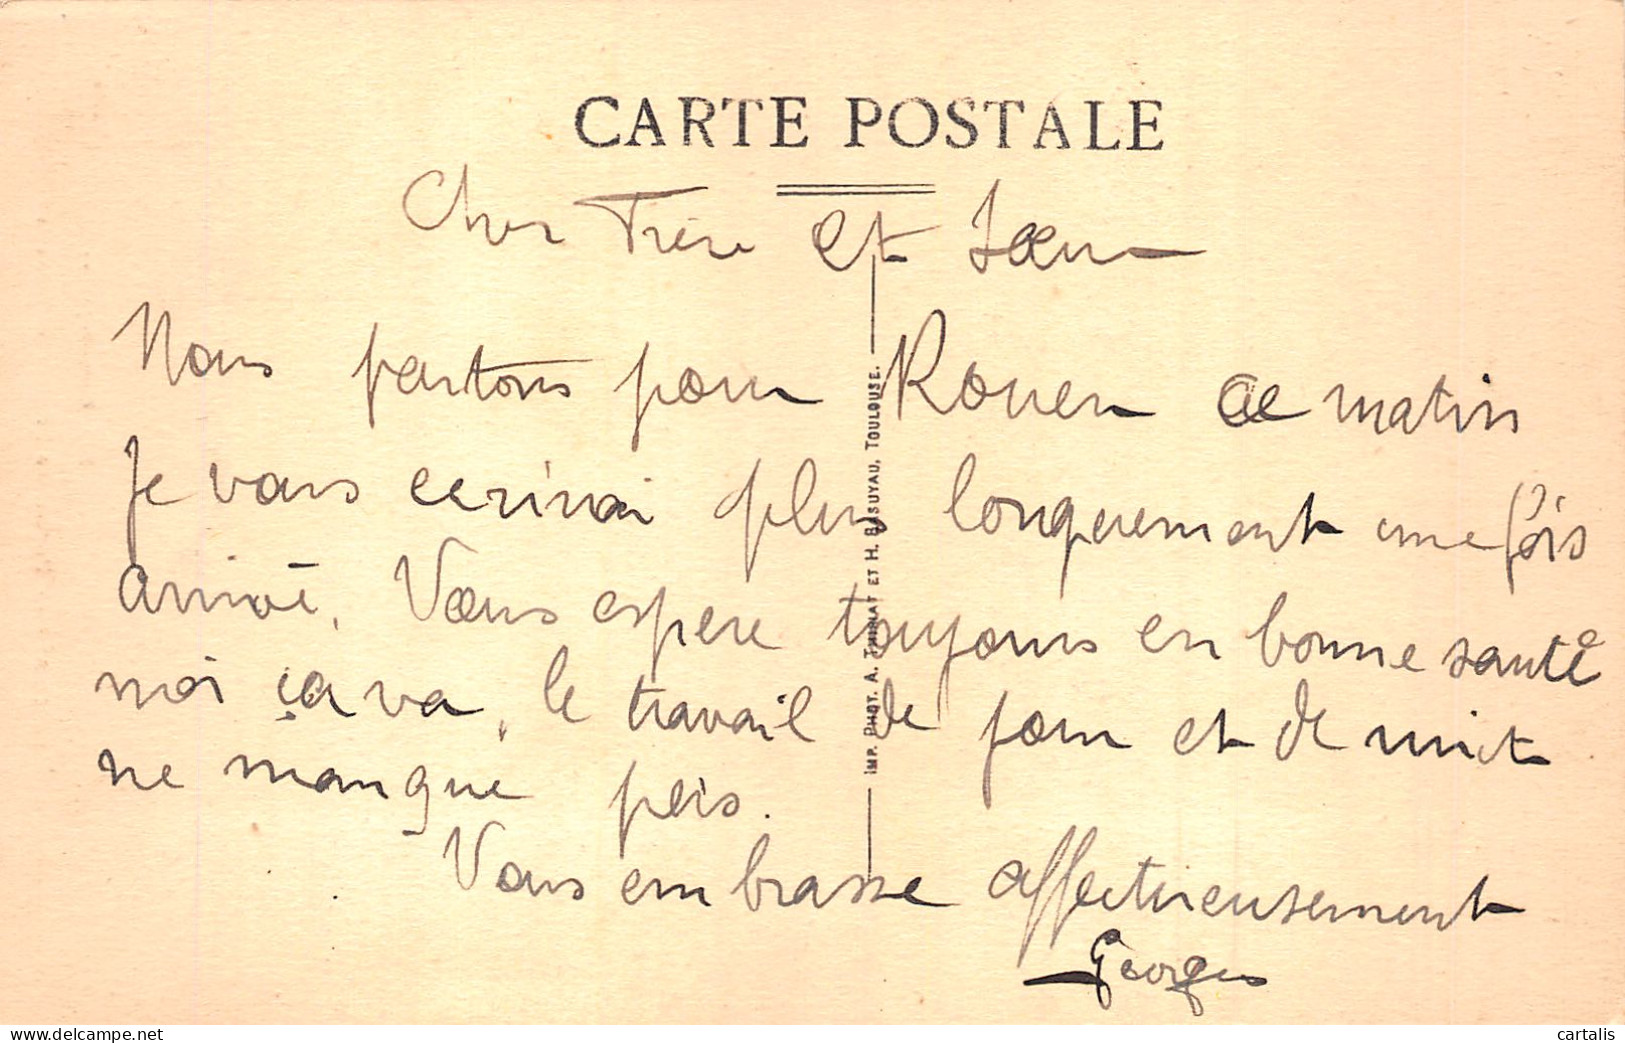 CARTE POSTALE
Cher Frère et Sœur
Nous partons pour Rouen ce matin
Je vous ecrirai plus longuement une fois
arrivé. Vous espere toujours en bonne santé
moi ça va, le travail de jour et de nuit
ne manque pas.
Vous embrasse affectueusement
Georges
IMP. PHOT. A. THIRIAT ET H. BASUYAU, TOULOUSE.
www.delcampe.net
cartalis